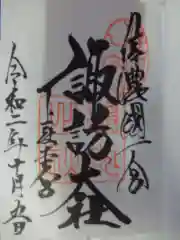 信濃國一宮
諏訪大社
令和二年十月五日